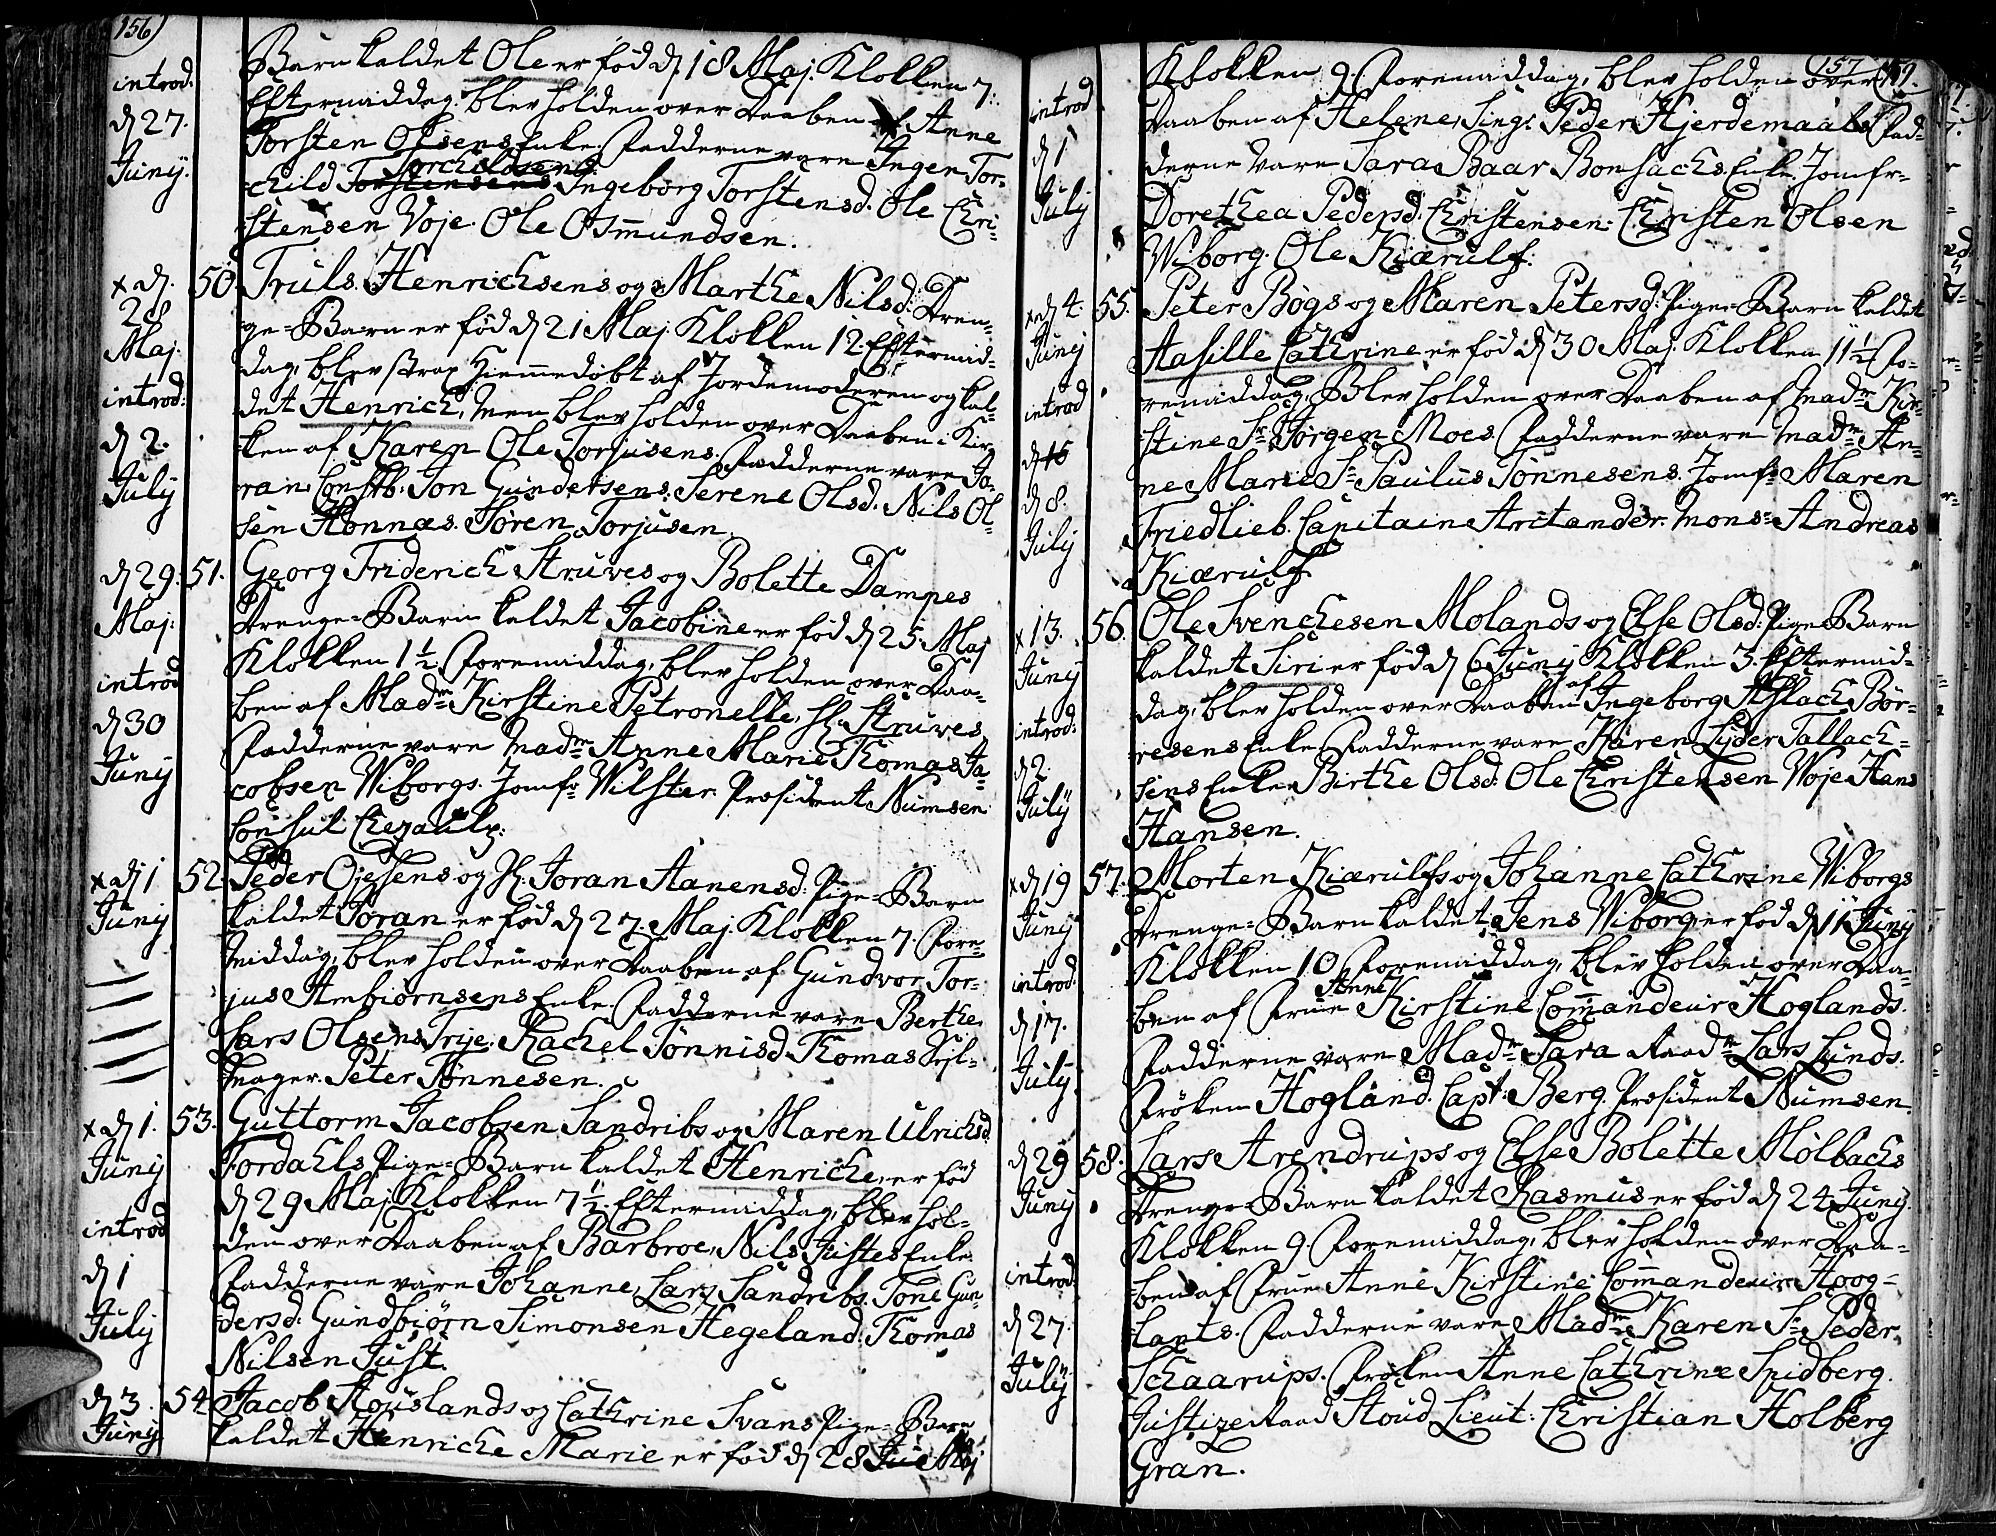 156
introd:
d 27.
Junÿ.
Barn kaldet Ole er fød d. 18 Maj. Klokken 7.
Eftermiddag, blev holden over Daaben af Anne
Torsten Olsens Enke. Fadderne vare Ingen Tor-
child Torstensens Torchildsens. Ingeborg Torstensd: Ole Chri-
stensen Voje. Ole Osmundsen.
x d.
28
Maj.
introd:
d 2.
Julÿ
50. Truls Henrichsens og Marthe Nilsd: Dren-
ge-Barn er fød d 21 Maj. Klokken 12. Eftermid-
dag, blev strax Hiemmedøbt af Jordemoderen og kal-
det Henrich, men blev holden over Daaben i Kir-
ken af Karen Ole Torjusens. Fadderne vare Jo-
ran Jon Gundersens. Serene Olsd. Nils Ol-
sen Hønnæs. Søren Torjusen.
d 29.
Maj:
introd
d 30
Junÿ
51. Georg Friderich Struves og Bolette Dampes
Drenge-Barn kaldet Jacobine er fød d 25 Maj
Klokken 1½ Foremiddag, blev holden over Daa-
ben af Madm Kirstine Petronelle, Struves,
Fadderne vare Madm Anne Marie Thomas Ja-
cobsen Wiborgs. Jomfr Wilster. Præsident Numsen
Consul
x d 1
Junÿ
52. Peder Ojesens og H. Joran Aanensd: Pige-Barn
kaldet Joran er fød d 27. Maj. Klokken 7. Fore-
middag, blev holden over Daaben af Gundvor Tor-
jus Ambiørnsens Enke. Fadderne vare Berthe
Lars Olsens Trije. Rachel Tønnisd. Thomas Sejl-
mager. Peter Tønnesen.
x d 1.
Junÿ
introd
d 1
Julÿ
53. Guttorm Jacobsen Sandribs og Maren Ulrichsd
Fordahls Pige-Barn kaldet Henriche, er fød
d 29 Maj Klokken 7½. Eftermiddag, blev hol-
den over Daaben af Barbroe, Nils Justes Enke.
Fadderne vare Johanne, Lars Sandribs. Tone Gun-
dersd: Gundbiørn Simonsen Hegeland. Thomas
Nilsen Just.
d 3.
Junÿ
54 Jacob Houslands og Cathrine Svans Pige-Barn
kaldet Henriche Marie er fød d 28 Maj
157
introd
d 1
Julÿ
Klokken 9. Foremiddag, blev holden over
Daaben af Helene, Sing: Peder Hjerdemaals. Fad-
derne vare Sara Baar Bonsachs. Enke. Jomfr-
Dorethea Pedersd. Christensen. Christen Olsen
Wiborg. Ole Kiærulf.
x d 4.
Junÿ
introd
d 8.
Julÿ
55. Peter Bøgs og Maren Petersd: Pige-Barn kaldet
Aasille Cathrine er fød d 30 Maj. Klokken 11½ Fo-
remiddag, Blev holden over Daaben af Madm Kir-
stine Sr Jørgen Moes. Fadderne vare Madm An-
ne Marie Sr Paulus Tønnesens. Jomfr Maren
Friedlieb. Capitain Arctander. Mons: Andreas
Kiærulf.
x 13.
Junÿ
introd:
d 2.
Julÿ
56. Ole Svenchesen Molands og Else Olsd: Pige-Barn
kaldet Siri er fød d 6 Junÿ Klokken 3. Eftermid-
dag, blev holden over Daaben af Ingeborg Aslach Bör-
resens Enke. Fadderne vare Karen Syder Tallach-
sens Enke. Birthe Olsd: Ole Christensen Woje. Hans
Hansen.
x d 19
Junÿ
introd:
d 17.
Julÿ.
57. Morten Kiærulfs og Johanne Cathrine Wiborgs
Drenge-Barn kaldet Jens Wiborg er fød d 11 Junÿ
Klokken 10 Foremiddag, blev holden over Daa-
ben af Frue Anne Kirstine Commandeur Hoglands.
Fadderne vare Madm Sara Raadm Lars Lunds.
Frøken Hogland. Capt: Berg. Præsident Numsen.
d 29
Junÿ
introd:
d 27.
Julÿ
58. Lars Arendrups og Else Bolette Mølbachs
Drenge-Barn kaldet Rasmus er fød d 24 Junÿ.
Klokken 9. Foremiddag, blev holden over Daa-
ben af Frue Anne Kirstine Commandeur Hoog-
lants. Fadderne vare Madm Karen Sr Peder
Schaarups. Frøken Anne Cathrine Spidberg.
Justizeraad Stoud. Lieut: Christian Holberg
Gran.